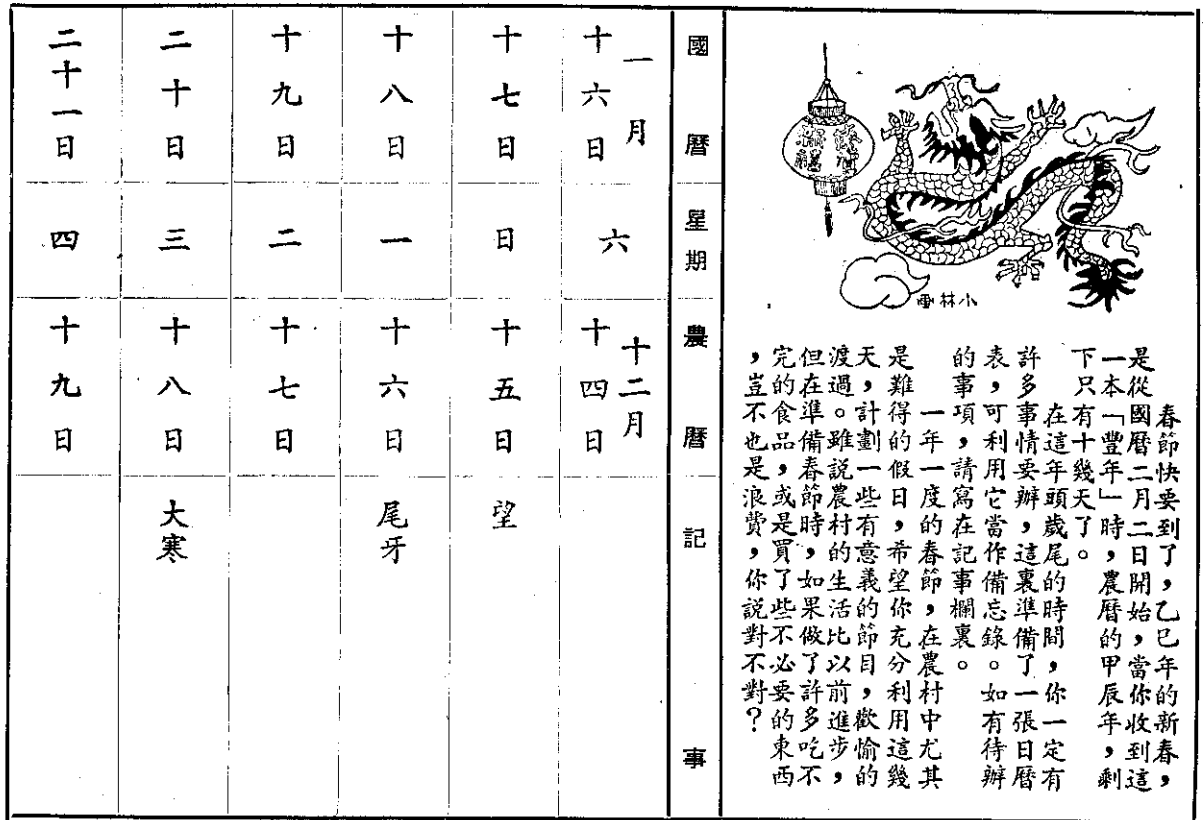 小林画
春節快要到了，乙巳年的新春，
是從國曆二月二日開始，當你收到這
一本「豐年」時，農曆的甲辰年，剩
下只有十幾天了。
在這年頭歲尾的時間，你一定有
許多事情要辦，這裏準備了一張日曆
表，可利用它當作備忘錄。如有待辦
的事項，請寫在記事欄裏。
一年一度的春節，在農村中尤其
是難得的假日，希望你充分利用這幾
天，計劃一些有意義的節目，歡愉的
渡過。雖說農村的生活比以前進步，
但在準備春節時，如果做了許多吃不
完的食品，或是買了些不必要的東西
，豈不也是浪費，你說對不對？
國曆 星期 農曆 記事
一月十六日 六 十二月十四日
十七日 日 十五日 望
十八日 一 十六日 尾牙
十九日 二 十七日
二十日 三 十八日 大寒
二十一日 四 十九日